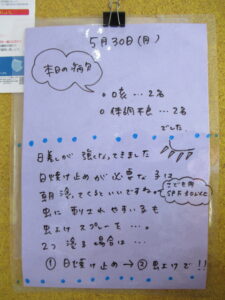 5月30日(月)
本日の病欠
○ 咳 … 2名
○ 体調不良 … 2名
でした。
日差しが 強くなってきました
日焼け止めが必要な子は
朝 塗ってくるといいですね。
こども用
SPF 30以上
虫に 刺されやすい子も
虫よけ スプレーを …。
2つ 塗る 場合は …
① 日焼け止め → ② 虫よけ で!!